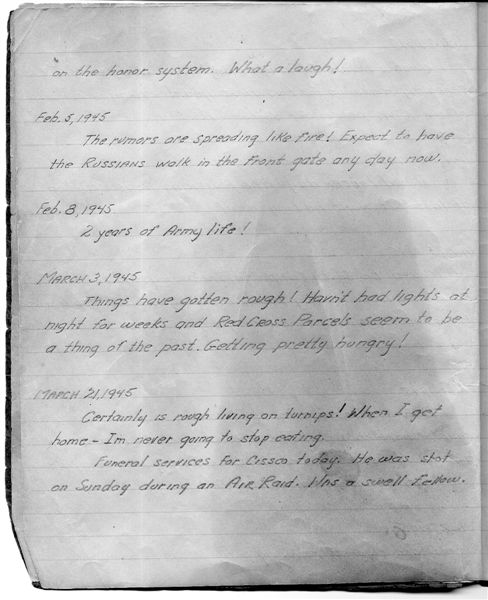 on the honor system. What a laugh!
Feb. 5, 1945
The rumors are spreading like fire! Expect to have
the RUSSIANS walk in the front gate any day now.
Feb. 8, 1945
2 years of Army life!
MARCH 3, 1945
Things have gotten rough! Havn't had lights at
night for weeks and Red Cross Parcels seem to be
a thing of the past. Getting pretty hungry!
MARCH 21, 1945
Certainly is rough living on turnips! When I get
home - Im never going to stop eating.
Funeral services for Cissco today. He was shot
on Sunday during an AIR RAID. Was a swell fellow.